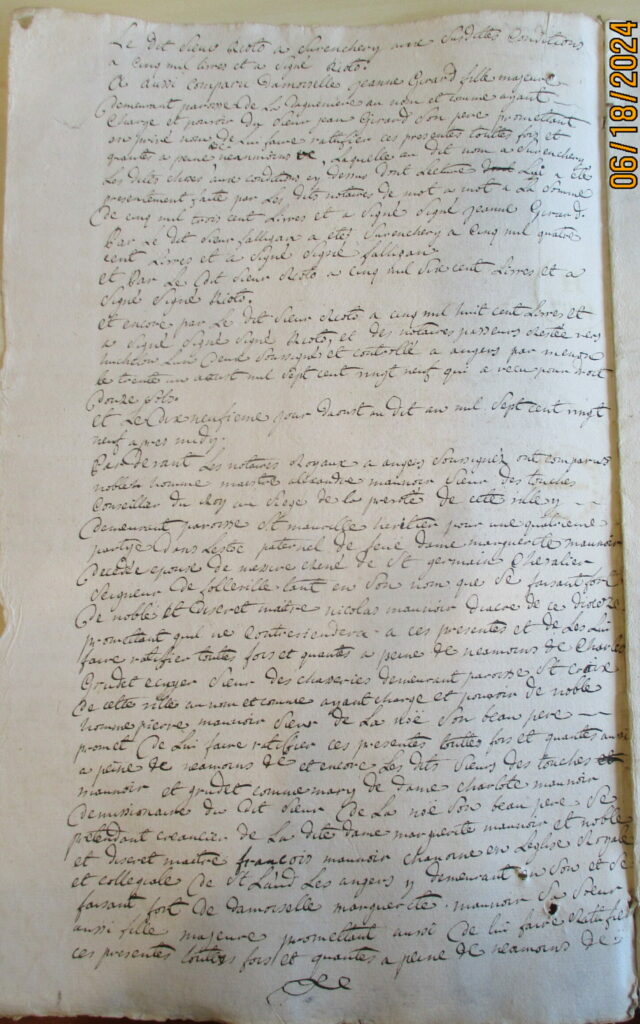 Le dit sieur Rioto a surenchery aux susdittes Conditions
a cinq mil livres et a signé Rioto.
A aussi Comparu Damoiselle Jeanne Girard fille majeure
demeurant paroisse de La Daguenière au nom et comme ayant
charge et pouvoir du sieur jean Girard son pere promettant
en privé nom de lui faire ratiffier ces presentes touttes fois et
quantes a peine neanmoins &c, Laquelle au dit nom a surenchery
Les dittes choses aux conditions cy dessus dont Lecture Lui a été
presentement faite par Les dits notaires de mot a mot a La somme
de cinq mil trois cent Livres et a signé signé jeanne Girard.
Par Le dit sieur falligan a eté surenchery a cinq mil quatre
cent Livres et a signé signé falligan
et Par Le dit sieur Rioto a cinq mil six cent Livres et a
signé signé Rioto.
et encore par Le dit sieur Rioto a cinq mil huit cent Livres et
a signé signé signé Rioto, et des notaires passeurs restée vers
Lun Deux soussigné et controllé a angers par
le trente un aoust mil sept cent vingt neuf qui a recu pour droit
douze sols.
et Le Dix neufieme jour daoust au dit an mil sept cent vingt
neuf apres midy.
Par devant Les notaires Royaux a angers soussignez ont comparus
noble homme maistre alexandre maunoir sieur des touches
Conseiller du Roy au siege de la prevoté de cette ville y
demeurant paroisse St maurille heritier pour une quatrieme
partye dans Lestoc paternel de feue dame marguerite maunoir
decedée epouse de messire rené de St germain Chevalier
seigneur de tant en son nom que se faisant fort
de noble et discret maitre nicolas maunoir diacre de ce dioceze
promettant quil ne contreviendera a ces presentes et de Les Lui
faire ratiffier touttes fois et quantes a peine de neamoins de Charles
Grudet ecuyer sieur des chaseries demeurant paroisse St croix
de cette ville au nom et comme ayant charge et pouvoir de noble
homme pierre maunoir sieur de La noë son beau pere
promet de Lui faire ratiffier ces presentes touttes fois et quantes aussi
a peine de neamoins de et encore Les dits sieurs des touches
maunoir et grudet comme mary de dame charlote maunoir
demissionaire du dit sieur de La noë son beau pere se
pretendant creancier de La dite dame marguerite maunoir et noble
et discret maitre françois maunoir chanoine en Leglise Royale
et collegiale de St Laud Les angers y demeurant en son et se
faisant fort de damoiselle marguerite maunoir sa soeur
aussi fille majeure promettant aussi de lui faire Ratiffier
ces presentes touttes fois et quantes a peine de neamoins de
06/18/2024